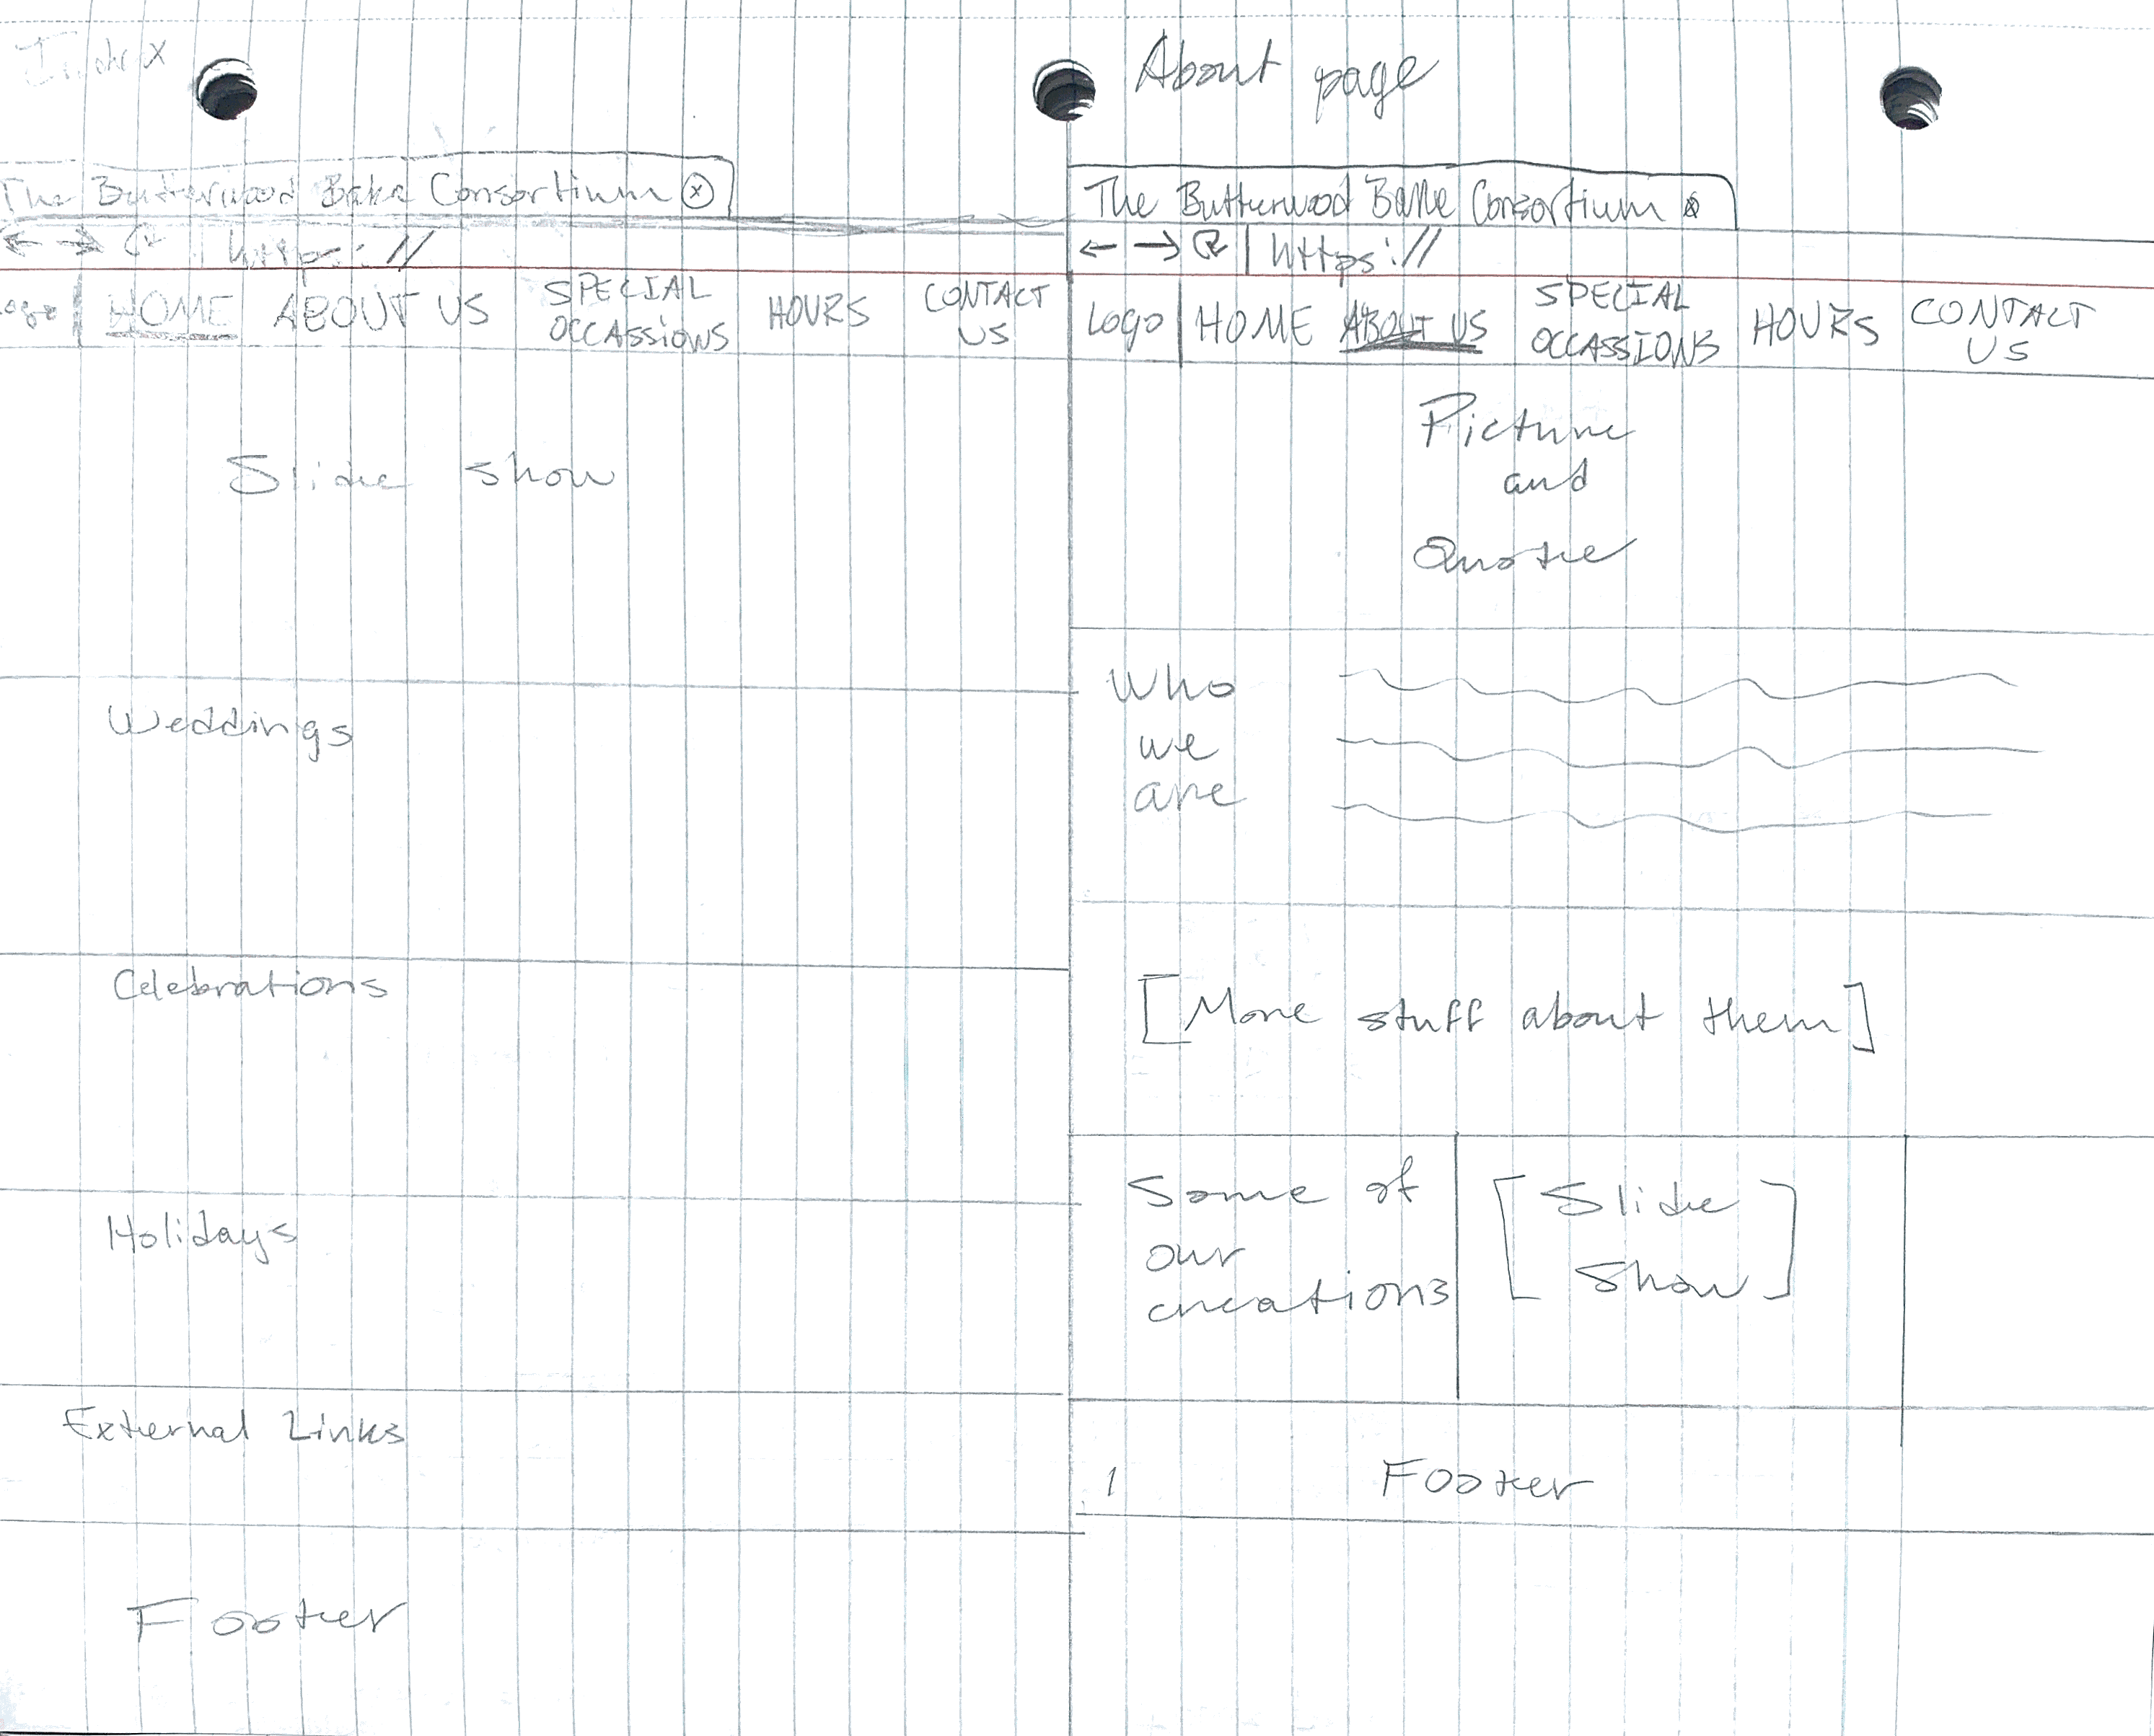 Index
The Butterwood Bake Consortium ⓧ
← → https://
Logo | HOME ABOUT US SPECIAL OCCASSIONS HOURS CONTACT US
Slide show
Weddings
Celebrations
Holidays
External Links
Footer
About page
The Butterwood Bake Consortium ⓧ
← → | https://
Logo | HOME ABOUT US SPECIAL OCCASSIONS HOURS CONTACT US
Picture
and
Quote
Who
we
are
[More stuff about them]
Some of
our
creations
[Slide
Show]
Footer